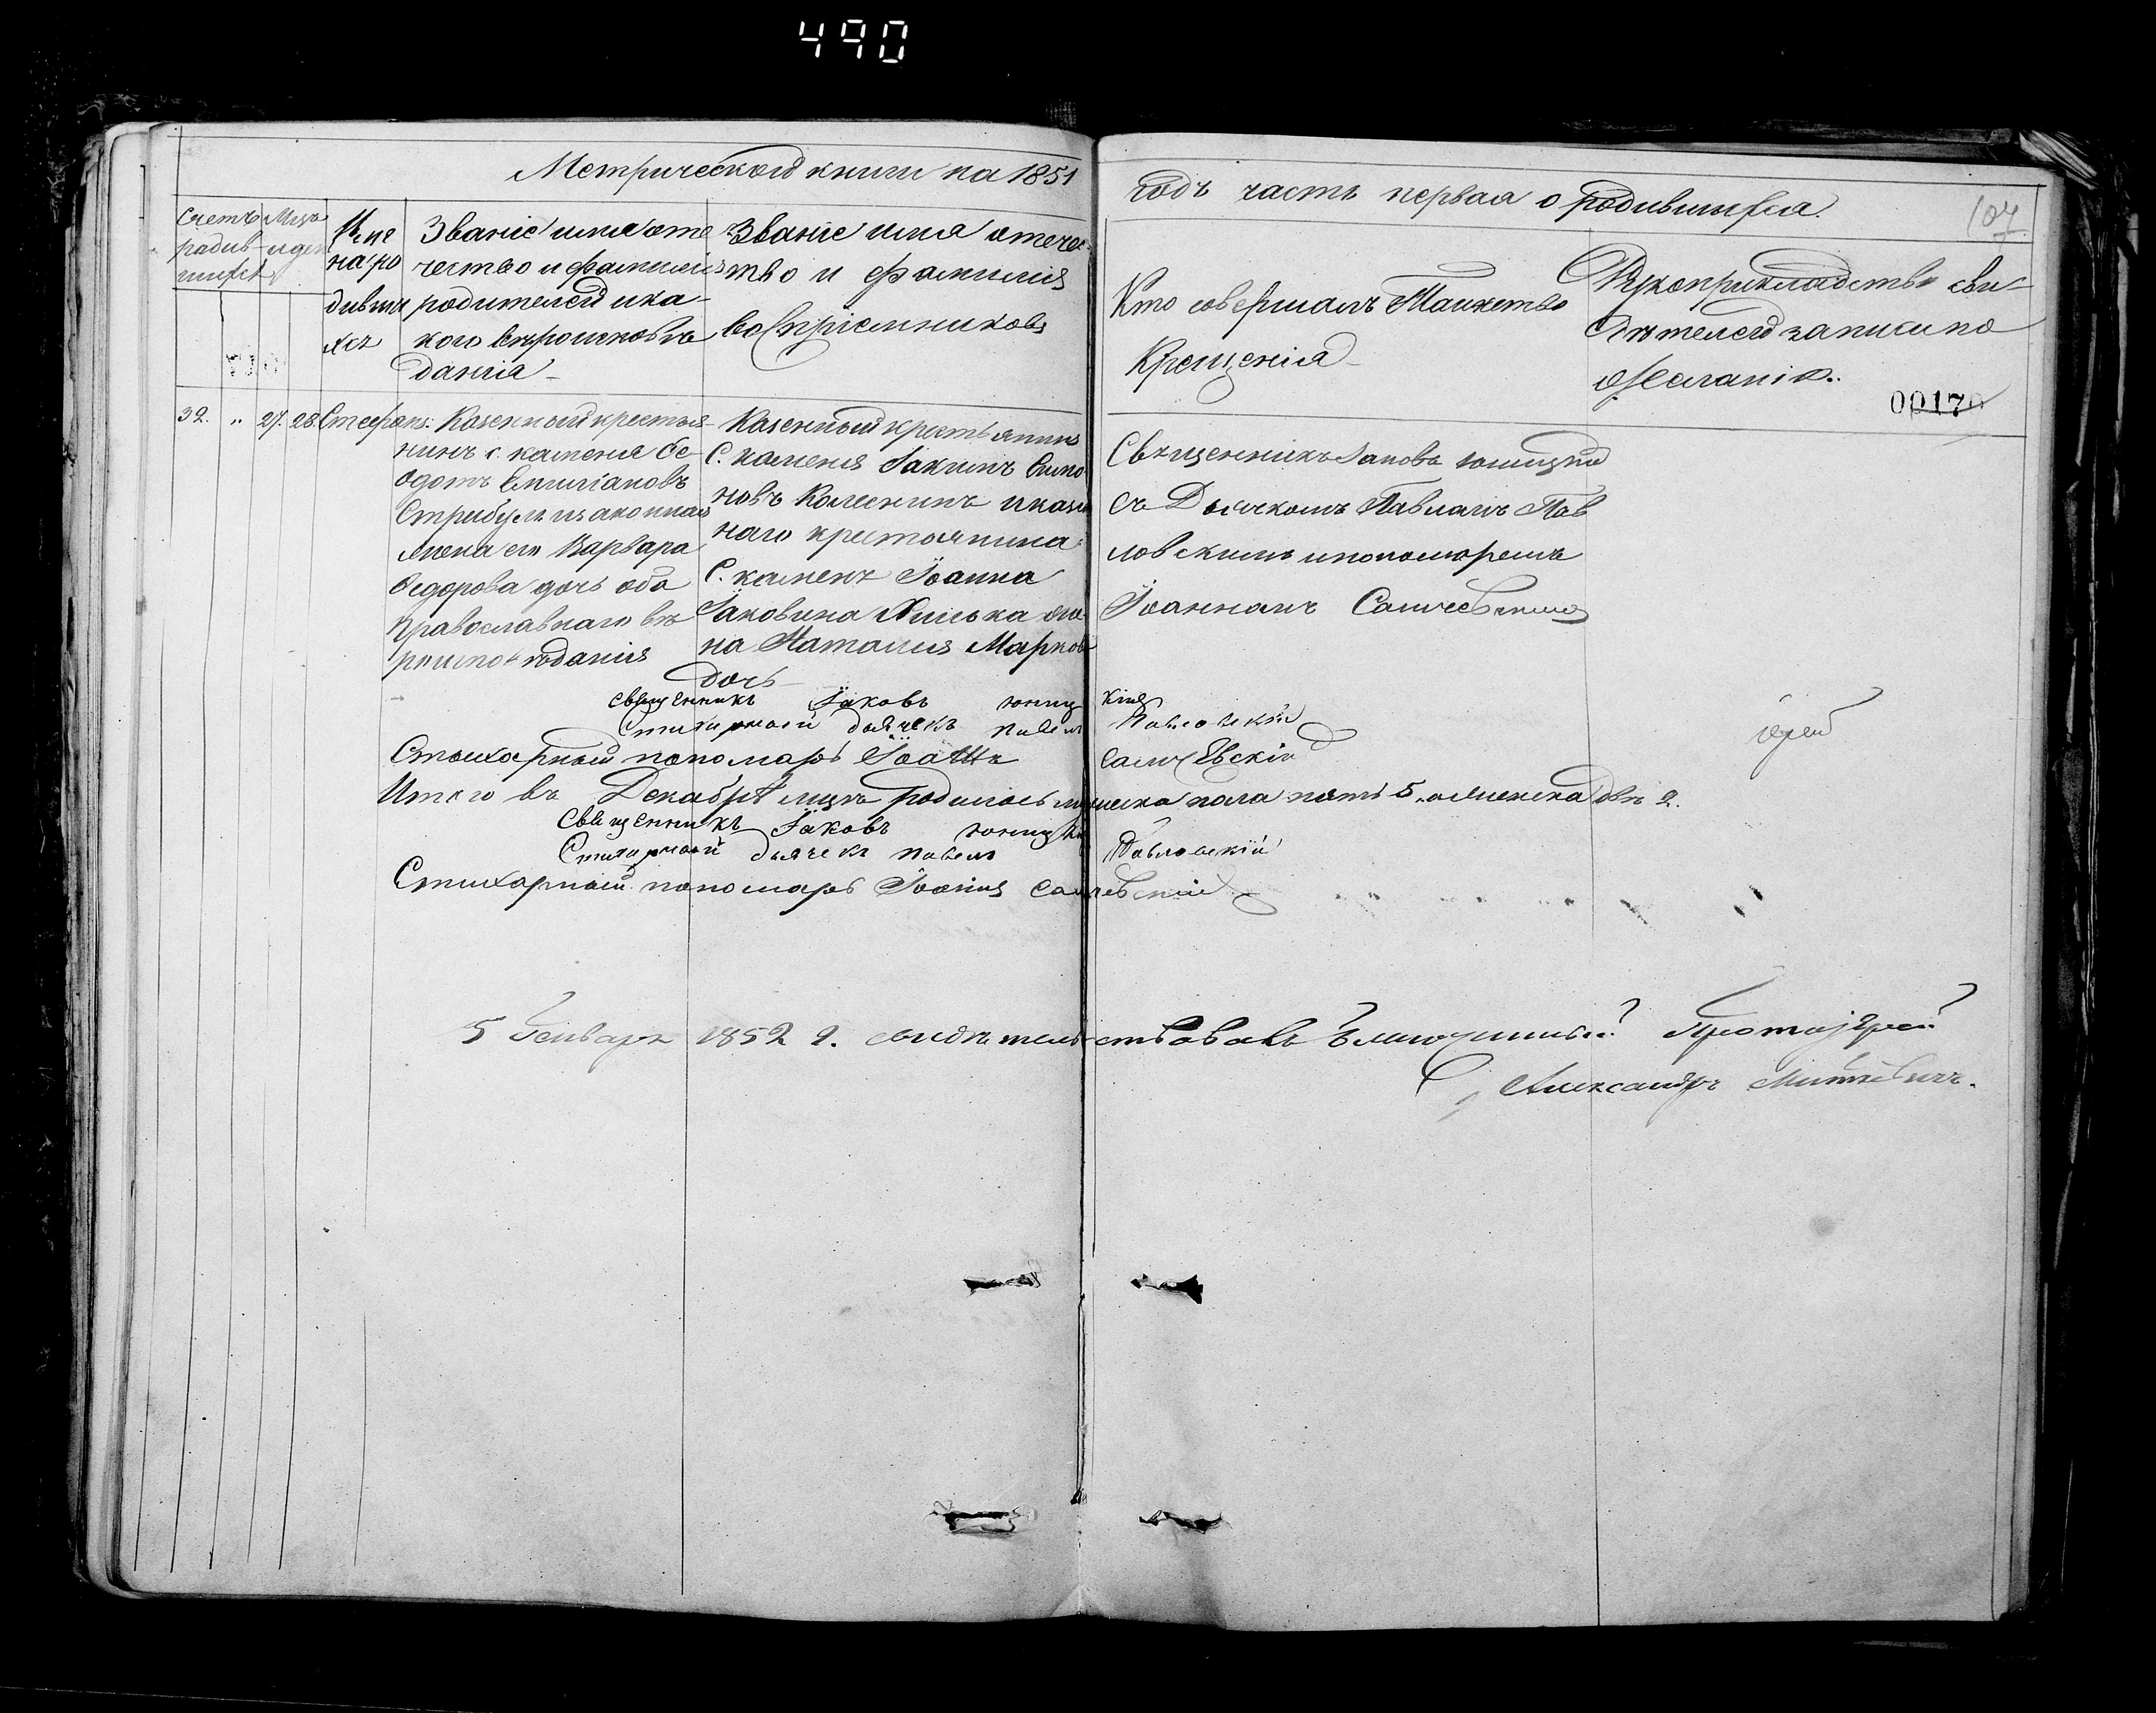 490
Метрической книги на 1851
годъ часть первая о родившихся.
107
Счетъ
родив-
шихся
Мцъ
и ден
Име
на ро
дивши
хся
Званіе имя оте
чество и фамилія
родителей и ка-
кого вѣроисповѣ
данія
Званіе имя отече-
тво и фамилія
воспріемниковъ
Кто совершалъ Таинство
Крещенія
Рукоприкладство сви-
дѣтелей записи по
желанію.
00170
32. " 27. 28. Стефанъ.
Казенный крестья-
нинъ с. каменя Ѳе-
одотъ Емиліановъ
Стрибуль и законная
жена его Варвара
Ѳедорова дочь оба
православнаго вѣ
роисповѣданія
Казенный крестьянинъ
С. каменя Іакимъ
новъ и казен
наго крестьянина
С. каменя Іоанна
Іаковина жо
на Наталия Марков
дочь
Священникъ Іаковъ Юницкій
съ Дьячкомъ Павломъ Пав
ловскимъ и пономаремъ
Іоанномъ
Священникъ Іаковъ Юницкій
Стихарный дьячекъ Павелъ Павловскій
Іерей
Стихарный пономарь Іоаннъ
Итого въ Декабрѣ мцѣ родилось мужеска пола пять 5. а женска двѣ 2.
Священникъ Іаковъ Юницкій
Стихарный дьячекъ Павелъ Павловскій
Стихарный пономарь Іоаннъ
5 Генваря 1852 г. свидѣтельствовалъ Благочинный Протоіерей
Александръ Миткевичъ.